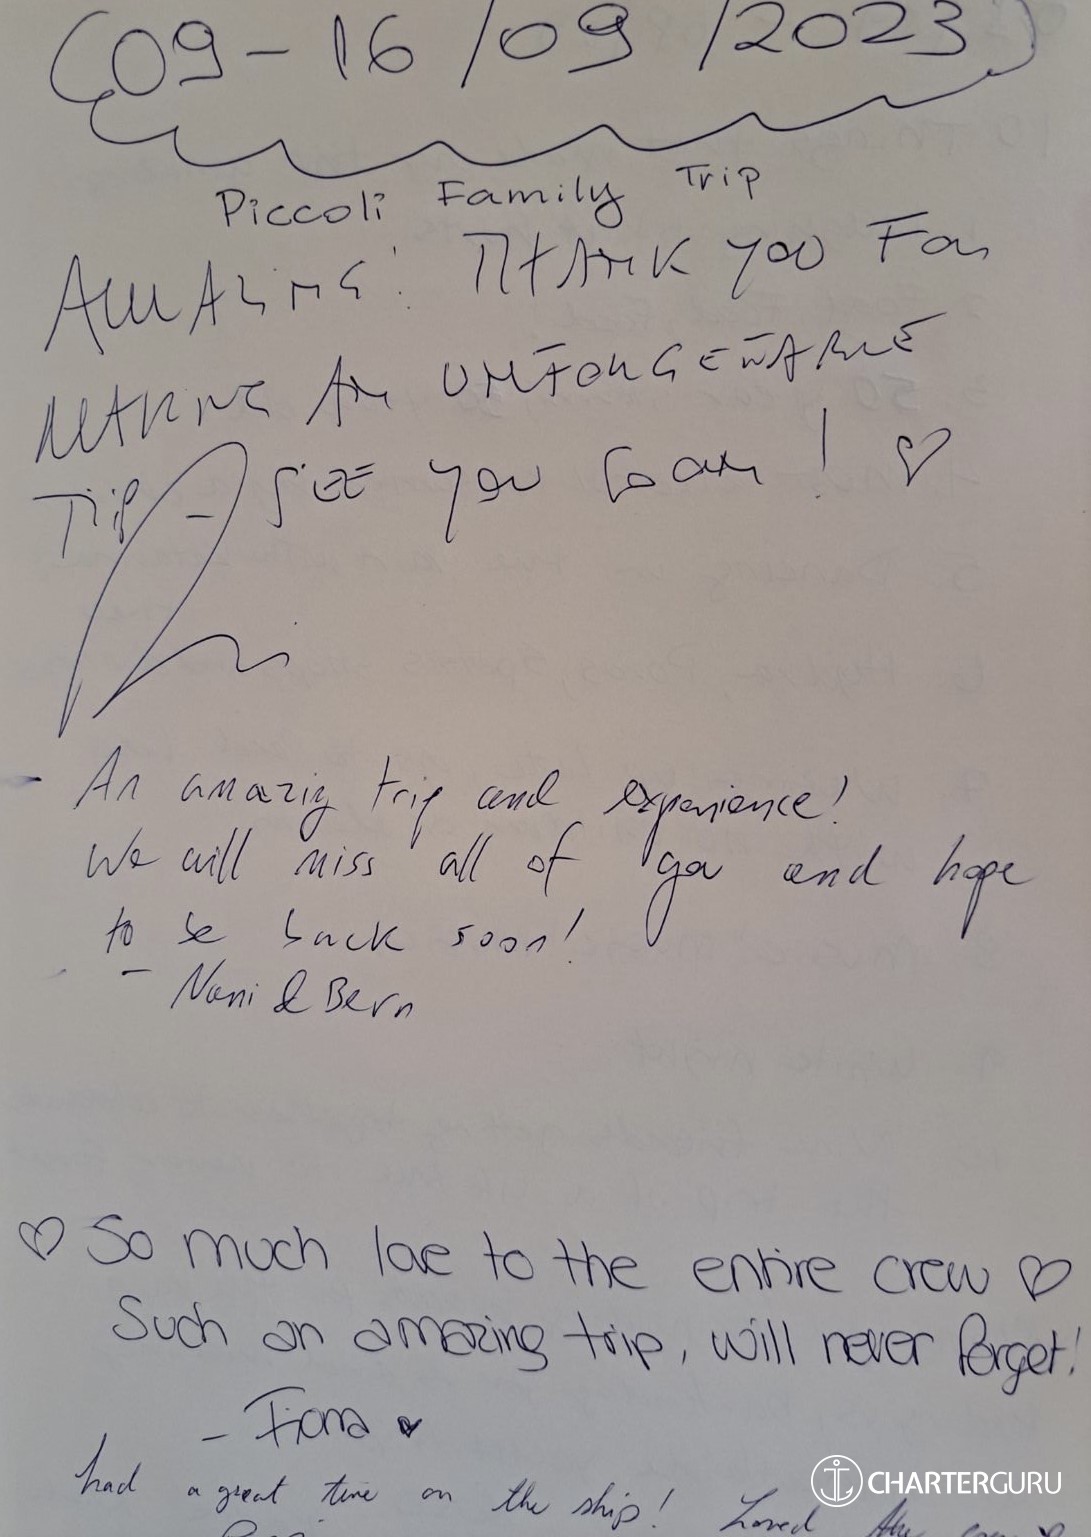 (09-16/09/2023)
Piccoli Family Trip
AMAZING! THANK YOU FOR
MAKING AN UNFORGETTABLE
TRIP - SEE YOU SOON! ♡
- An amazing trip and experience!
We will miss all of you and hope
to be back soon!
- Nani & Bern
♡ So much love to the entire crew ♡
Such an amazing trip, will never forget!
- Fiona ♥
had a great time on the ship! Loved the
CHARTERGURU